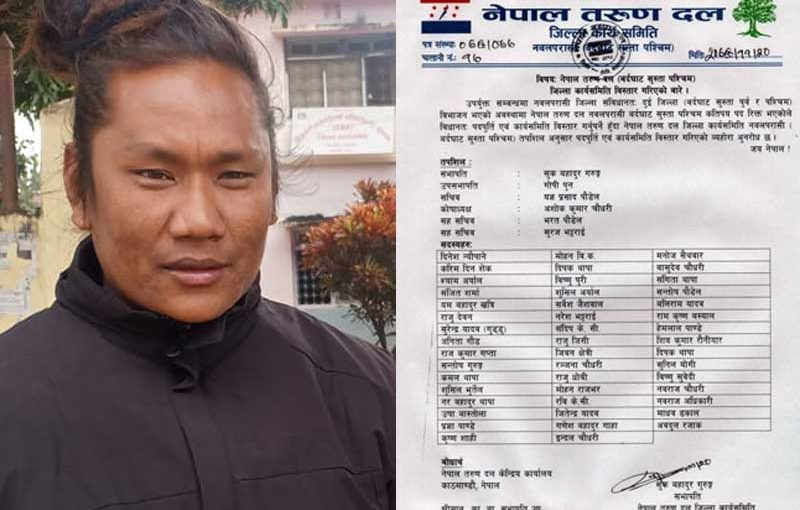 नेपाल तरुण दल
जिल्ला कार्य समिति
नवलपरासी (बर्दघाट सुस्ता पश्चिम)
पत्र संख्याः ०७५/०७६
चलानी नं.: १६
मितिः २०७५/११/२०
विषयः नेपाल तरुण दल (बर्दघाट सुस्ता पश्चिम)
जिल्ला कार्यसमिति विस्तार गरिएको बारे ।
उपर्युक्त सम्बन्धमा नवलपरासी जिल्ला संविधानतः दुई जिल्ला (बर्दघाट सुस्ता पुर्व र पश्चिम)
विभाजन भएको अवस्थामा नेपाल तरुण दल नवलपरासी बर्दघाट सुस्ता पश्चिम कतिपय पद रिक्त भएकोले
विधानतः पदपुर्ति एवं कार्यसमिति विस्तार गर्नुपर्ने हुँदा नेपाल तरुण दल जिल्ला कार्यसमिति नवलपरासी (
बर्दघाट सुस्ता पश्चिम) तपशिल अनुसार पदपुर्ति एवं कार्यसमिति विस्तार गरिएको व्यहोरा अनुरोध छ ।
जय नेपाल !
तपशिल :
सभापति : सुक बहादुर गुरुङ्ग
उपसभापति : गोपी पुन
सचिव : यज्ञ प्रसाद पौडेल
कोषाध्यक्ष : अशोक कुमार चौधरी
सह सचिव : भरत पौडेल
सह सचिव : सुरज भट्टराई
सदस्यहरुः
दिनेश न्यौपाने मोहन वि.क. मनोज सैथवार
करिम दिन शेक दिपक थापा बासुदेव चौधरी
श्याम अर्याल विष्णु पुरी संगिता थापा
संजित शर्मा सुसिल अर्याल सन्तोष पौडेल
यम बहादुर खत्रि सर्वेश जैशवाल बलिराम यादव
राजु देवन नरेश भट्टराई राम कृष्ण बस्याल
सुरेन्द्र यादव (गुड्डु) संदिप के. सी. हेमलाल पाण्डे
अनिता गौड राजु जिसी शिव कुमार रौनीयार
राज कुमार गुप्ता जिवन क्षेत्री दिपक थापा
सन्तोष गुरुङ्ग रञ्जना चौधरी सुनिल योगी
कमल थापा राजु धोबी विष्णु सुवेदी
सुसिल भुर्तेल मोहन राजभर नवराज चौधरी
नर बहादुर थापा रवि के.सी. नवराज अधिकारी
उषा बास्तोला जितेन्द्र यादव माधव ढकाल
प्रज्ञा पाण्डे गणेश बहादुर गाहा अबदुल रजाक
कृष्ण शाही इन्दल चौधरी
बोधार्थ
नेपाल तरुण दल केन्द्रिय कार्यालय
काठमाण्डौ, नेपाल
सुक बहादुर गुरुङ्ग
सभापति
नेपाल तरुण दल जिल्ला कार्यसमिति